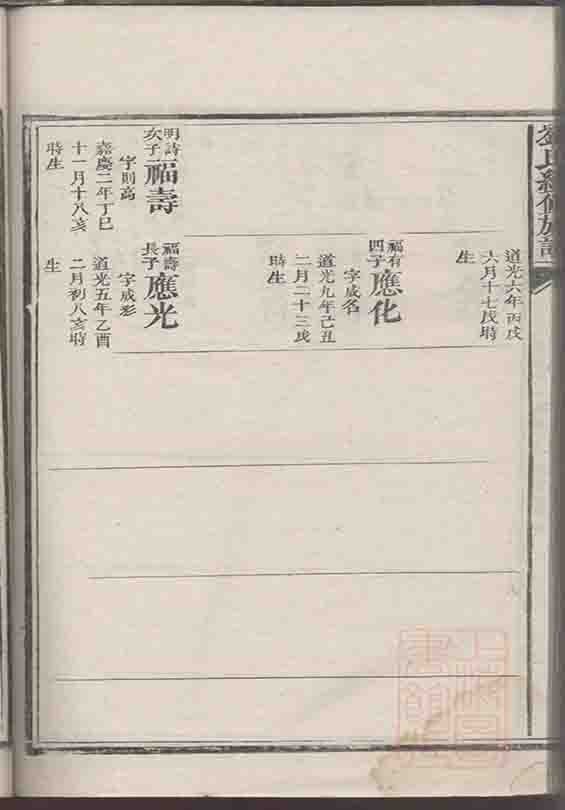 劉氏續修族譜
道光六年丙戌
六月十七戌時
生
福有
四子
應化
字成名
道光九年己丑
二月二十三戌
時生
明詩
次子
福壽
字則高
嘉慶二年丁巳
十一月十八亥
時生
福壽
長子
應光
字成彩
道光五年乙酉
二月初八亥時
生
上海圖
書館藏